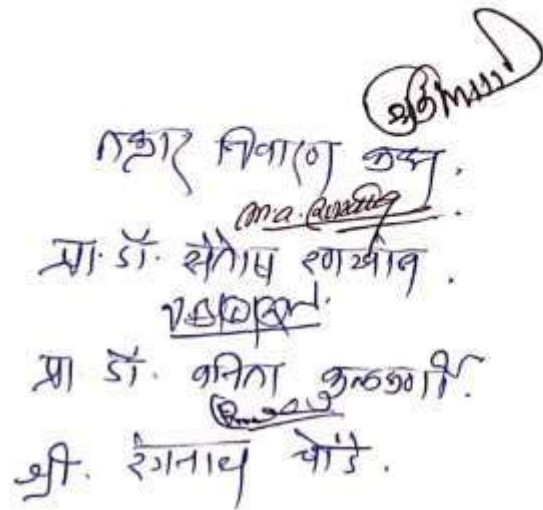 तक्रार निवारण कक्ष.
प्रा. डॉ. संतोष रणखांब.
प्रा डॉ. वनिता कुलकर्णी.
श्री. रंगनाथ चोंडे.